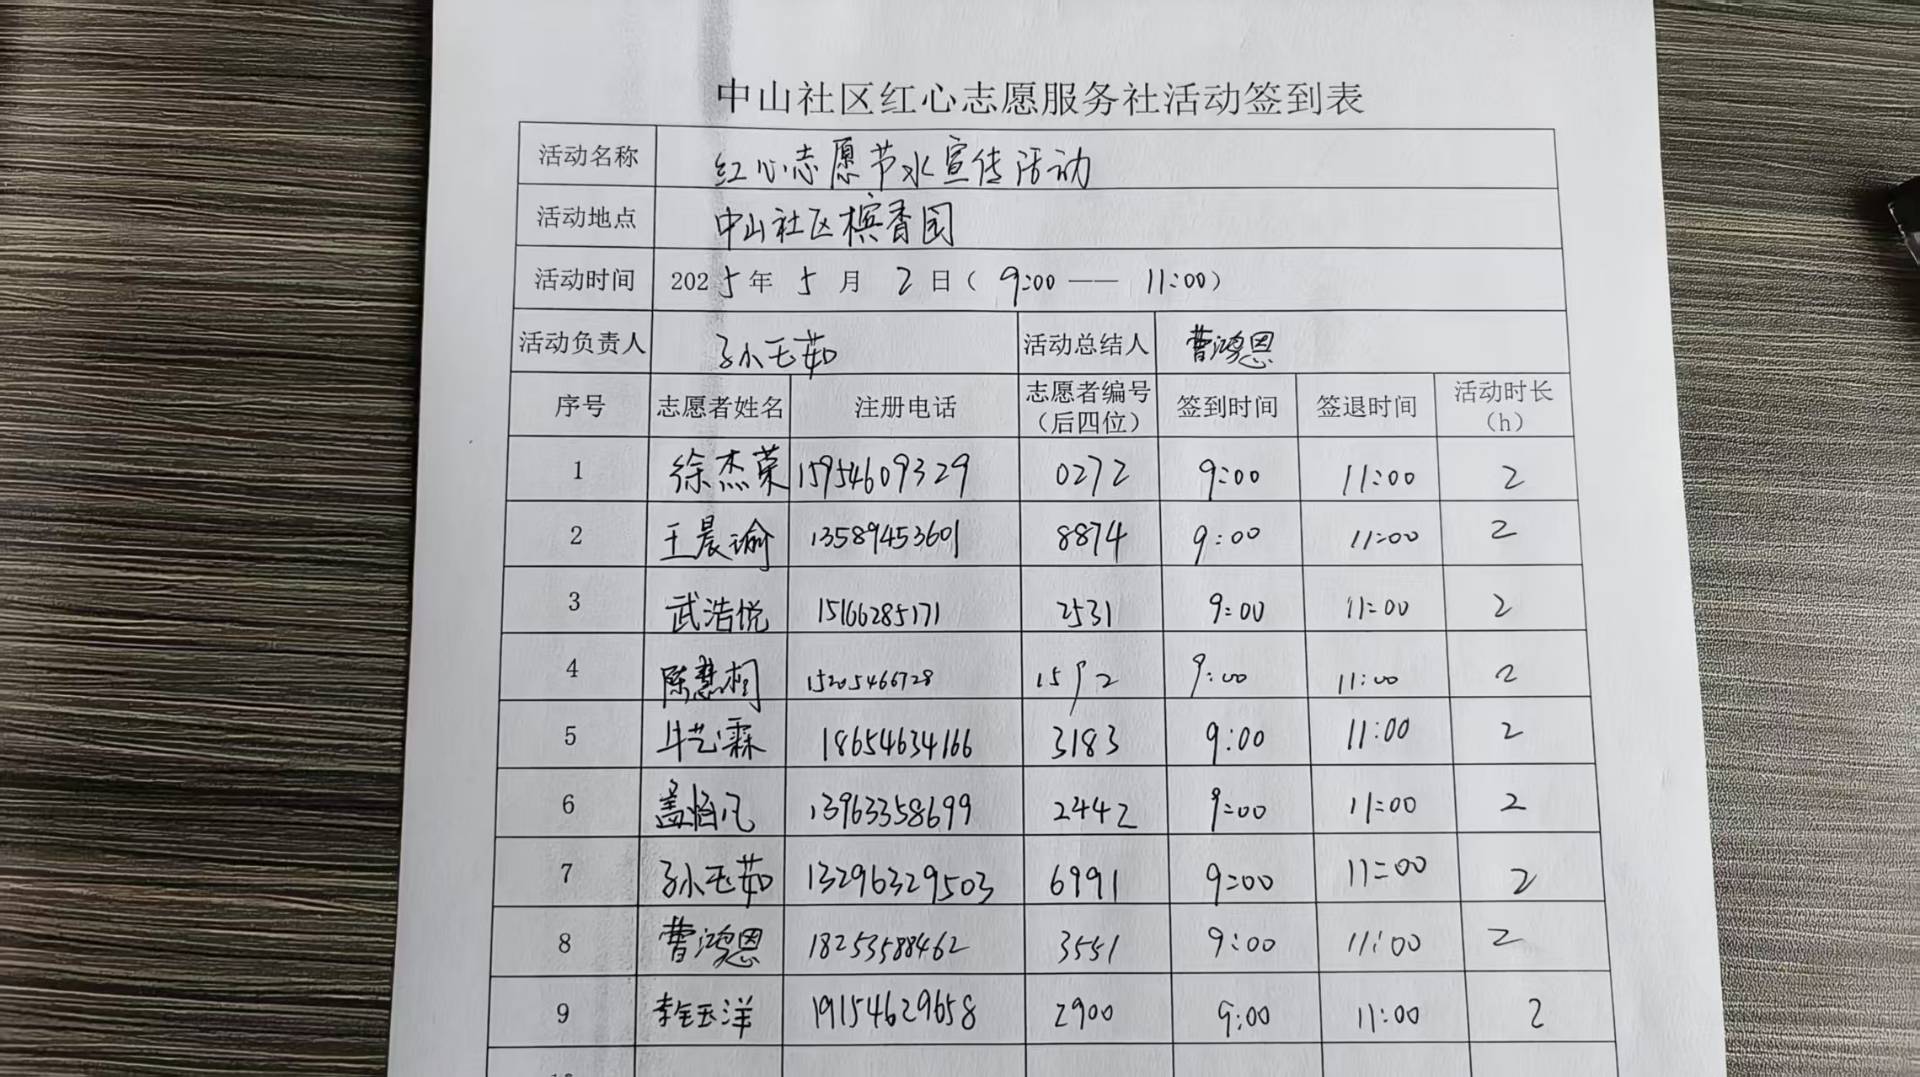 中山社区红心志愿服务社活动签到表
活动名称 红心志愿节水宣传活动
活动地点 中山社区槟香园
活动时间 2025年 5月 2日（9:00 —— 11:00）
活动负责人 孙玉茹 活动总结人 曹鸿恩
序号 志愿者姓名 注册电话 志愿者编号（后四位） 签到时间 签退时间 活动时长（h）
1 徐杰荣 15954609329 0272 9:00 11:00 2
2 王晨瑜 13589453601 8874 9:00 11:00 2
3 武浩悦 15166285171 2531 9:00 11:00 2
4 陈慧桐 15205466728 1592 9:00 11:00 2
5 牛艺霖 18654634166 3183 9:00 11:00 2
6 盖涵凡 13963358699 2442 9:00 11:00 2
7 孙玉茹 13296329503 6991 9:00 11:00 2
8 曹鸿恩 18253588462 3551 9:00 11:00 2
9 李玉洋 19154629658 2900 9:00 11:00 2